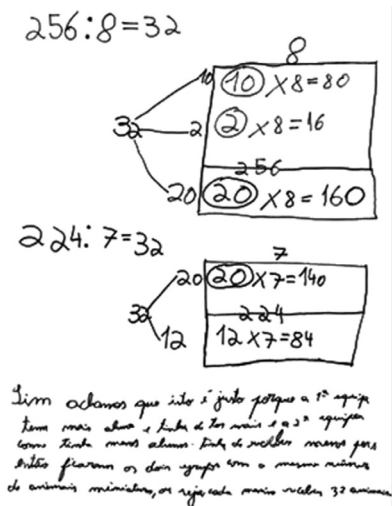 256:8=32
8
10 10 X 8=80
32 2 2 X 8=16
256
20 20 X 8=160
224:7=32
7
20 20 X 7=140
32 224
12 12 X 7=84
Sim achamos que isto é justo porque a 1ª equipa
tem mais alunos e tinha de ter mais e a 2ª equipa
como tinha menos alunos tinha de receber menos
então ficaram os dois grupos com o mesmo número
de animais miniatura, ou seja, cada recebeu 32 animais